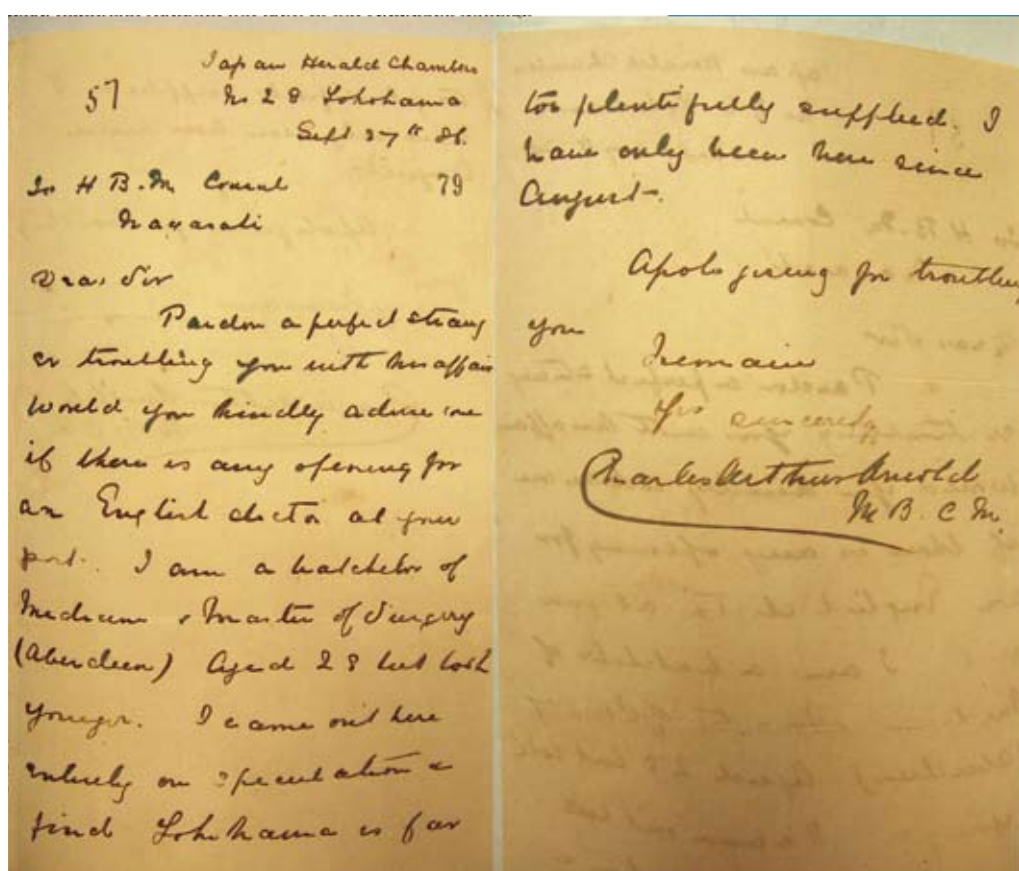 Japan Herald Chambers
57 No 28 Yokohama
Sept 27th 86.
To H B. M Consul 79
Nagasaki
Dear Sir
Pardon a perfect strang
er troubling you with his affairs
Would you kindly advise me
if there is any opening for
an English doctor at your
port. I am a batchelor of
Medicine & Master of Surgery
(Aberdeen) Aged 28 but look
younger. I came out here
entirely on speculation &
find Yokohama is far
too plentifully supplied. I
have only been here since
August.
Apologising for troubling
you
I remain
Yrs sincerely
Charles Arthur Arnold
M B. C M.